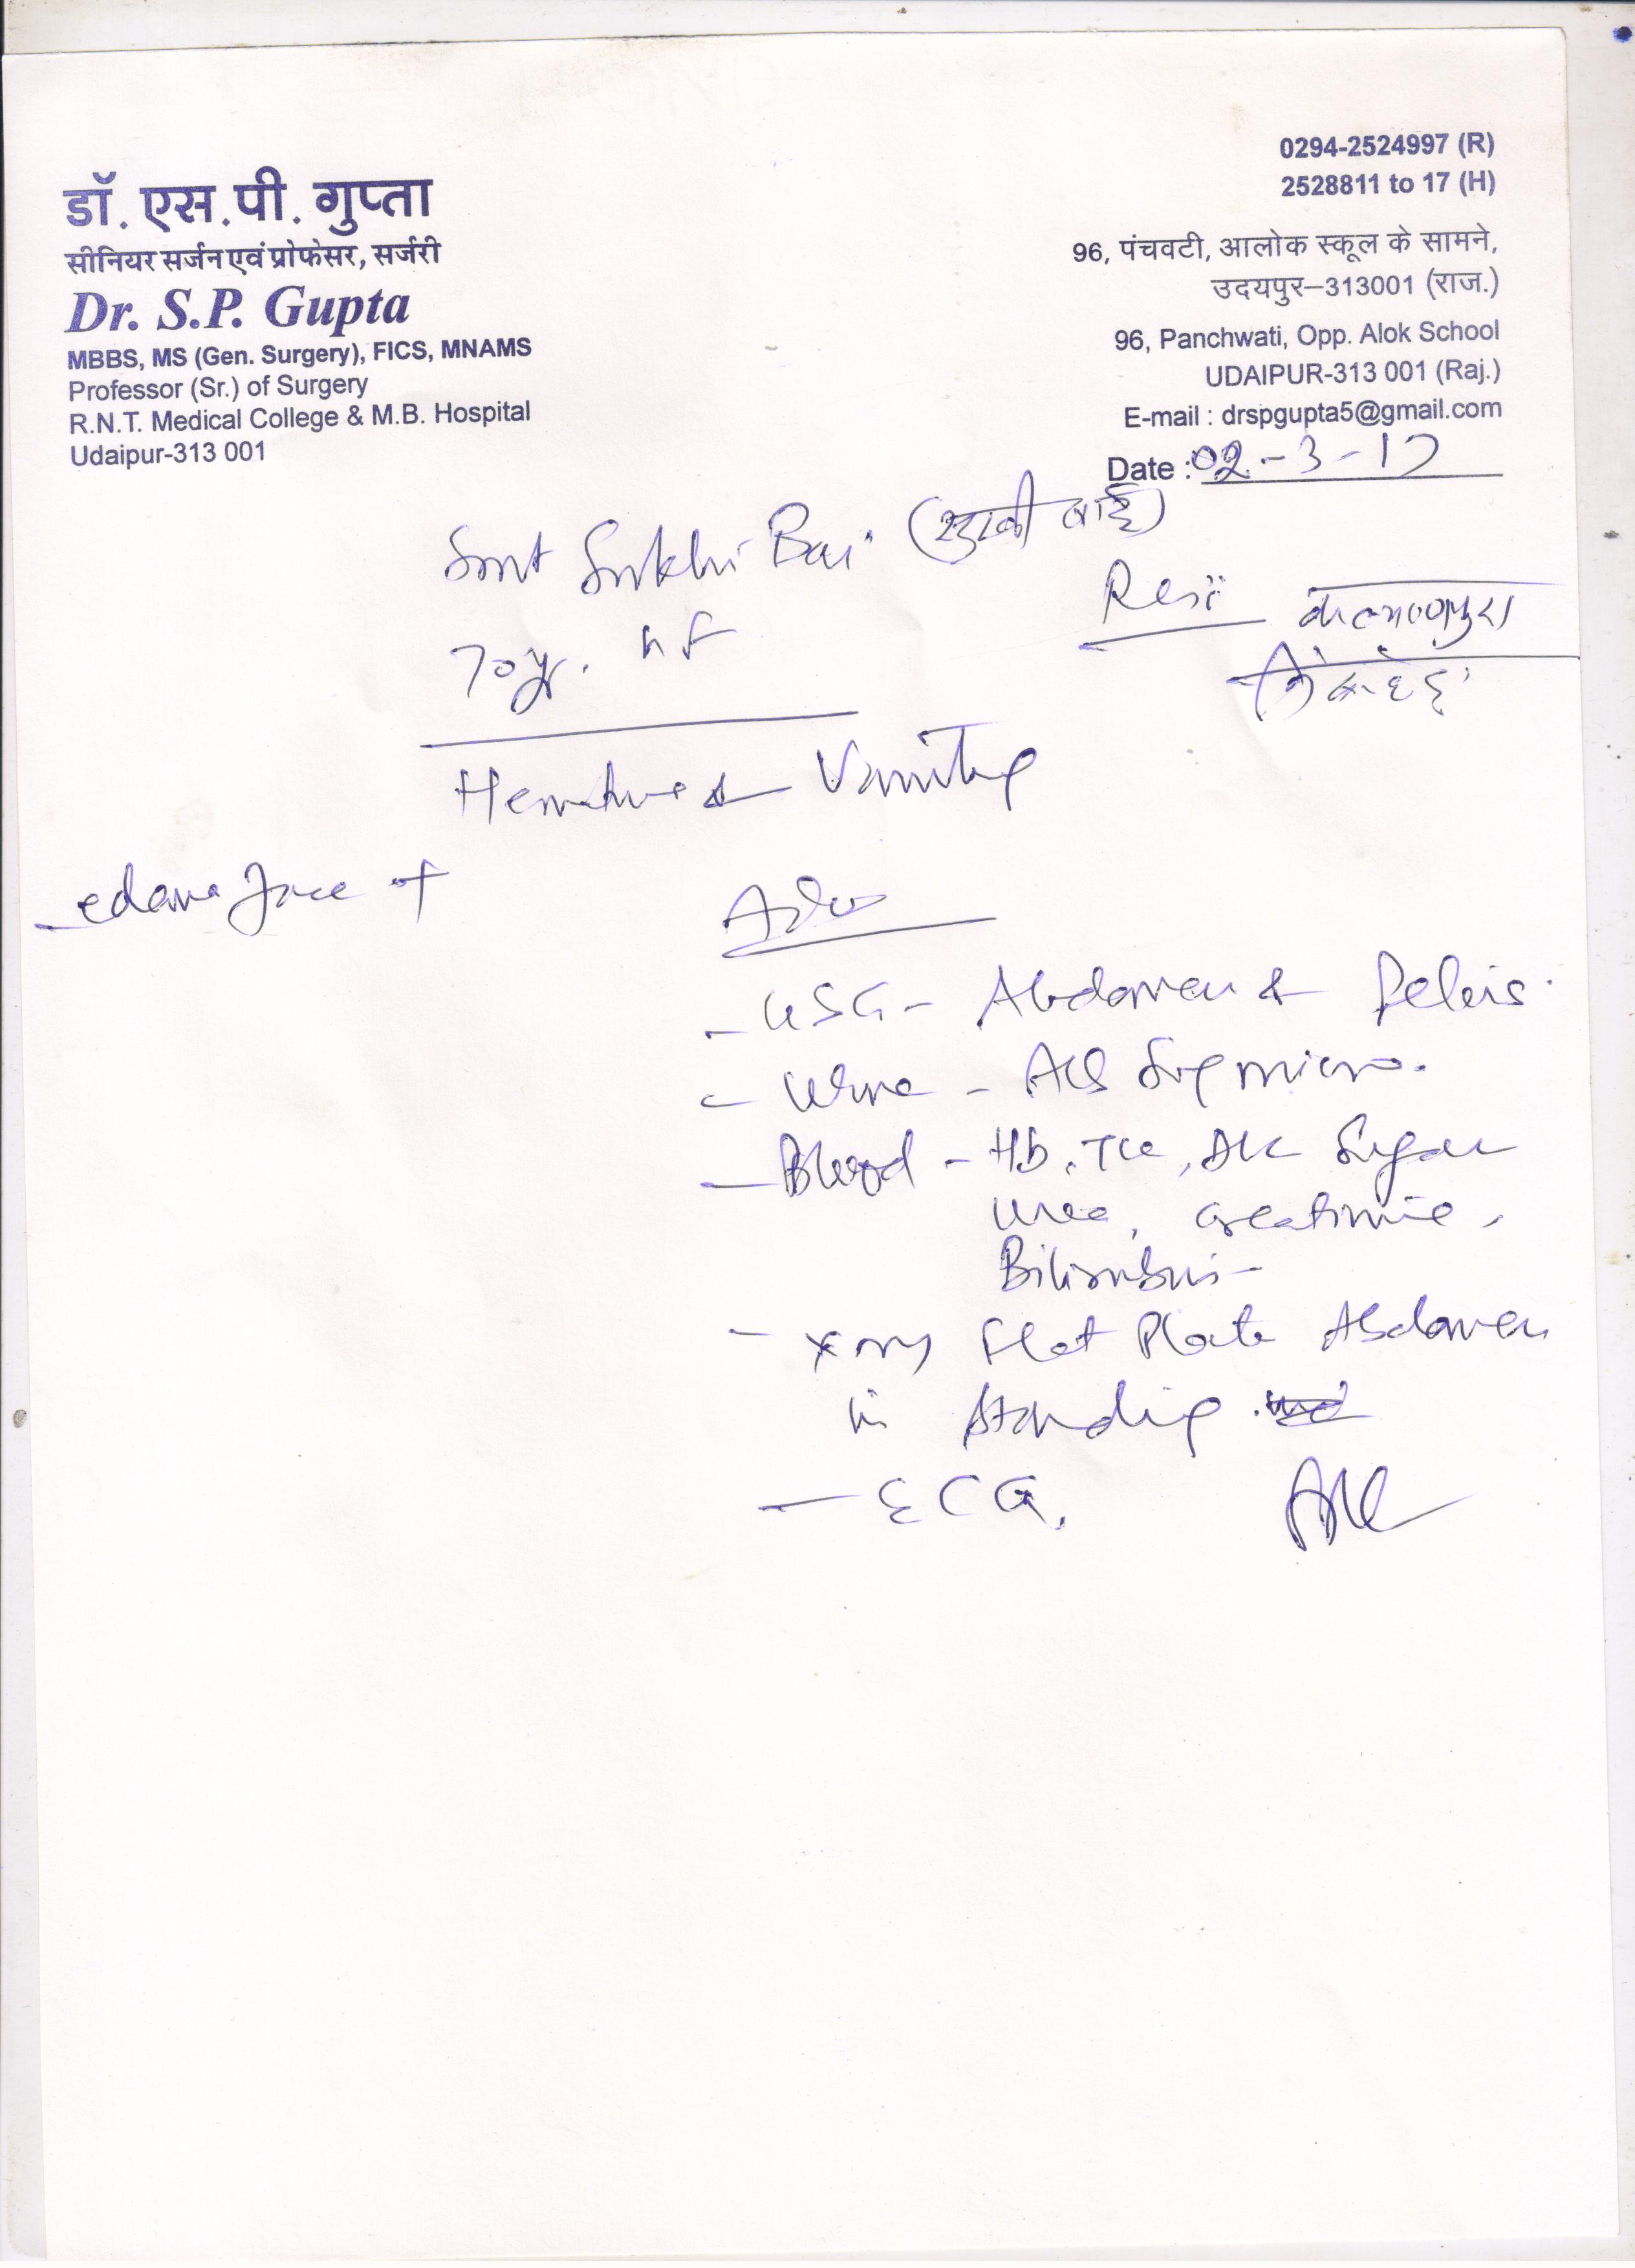 0294-2524997 (R)
2528811 to 17 (H)
डॉ. एस.पी. गुप्ता
सीनियर सर्जन एवं प्रोफेसर, सर्जरी
Dr. S.P. Gupta
MBBS, MS (Gen. Surgery), FICS, MNAMS
Professor (Sr.) of Surgery
R.N.T. Medical College & M.B. Hospital
Udaipur-313 001
96, पंचवटी, आलोक स्कूल के सामने,
उदयपुर–313001 (राज.)
96, Panchwati, Opp. Alok School
UDAIPUR-313 001 (Raj.)
E-mail : drspgupta5@gmail.com
Date : 02-3-17
Smt Sukhi Bai (सुखी बाई)
70yr.
Vomiting
edema face +
Adv
- USG - Abdomen & Pelvis.
- Urine - Alb Sug micro.
- Blood - Hb, TLC, DLC Sugar
Urea, creatinine,
Bilirubin
- Xray Flat Plate Abdomen
in standing
- ECG.